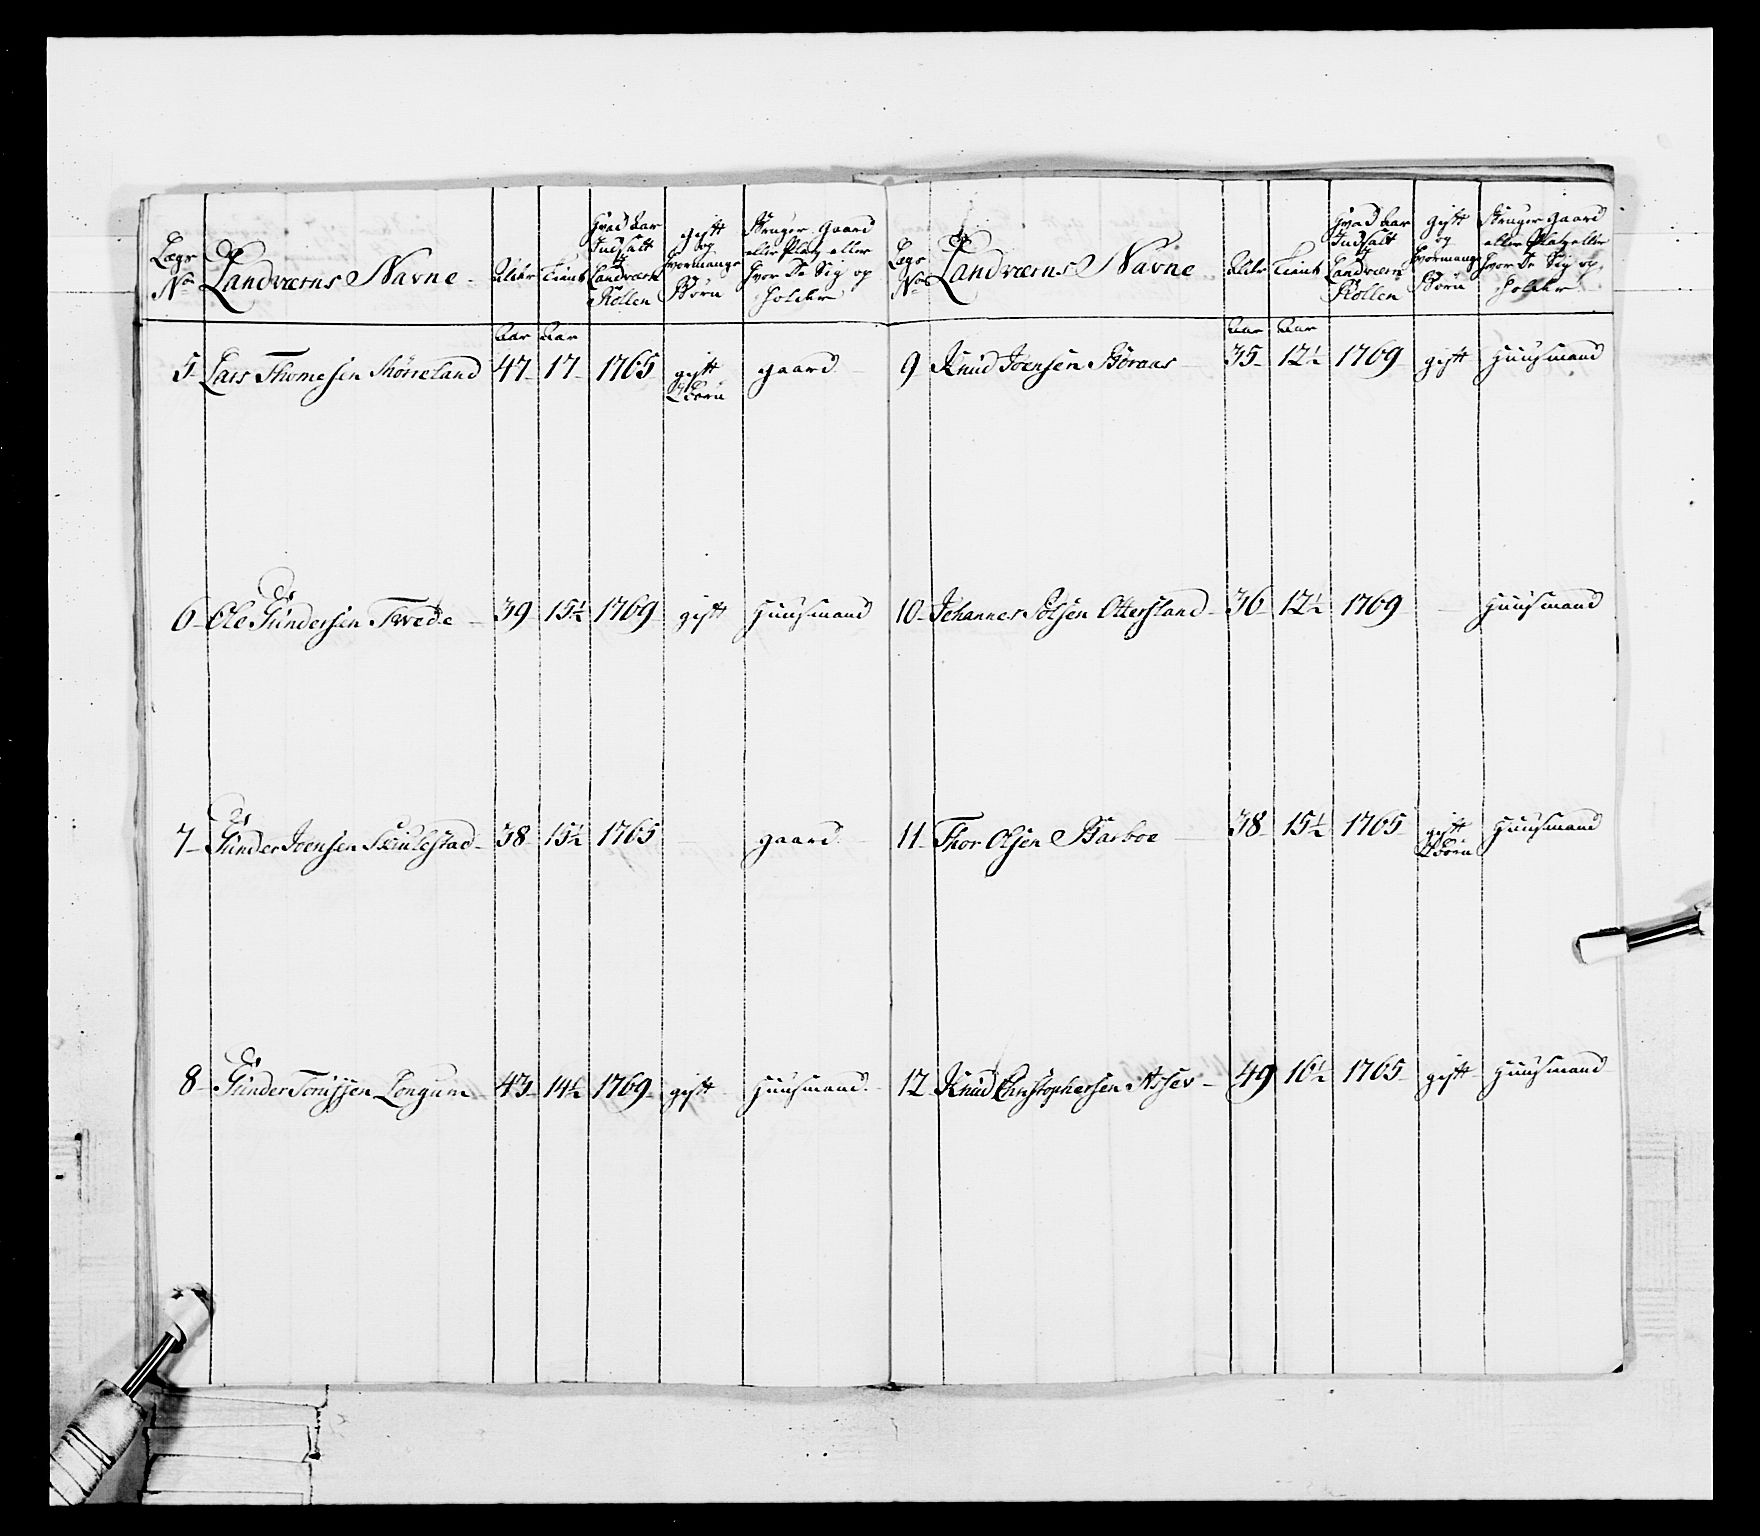 Lægs No
Landværns Navne
Alder
Tient
Hvad Aar Indsatt i Landværn Rollen
gift og hvormange Børn
Bruger gaard eller Platz eller hvor De Sig op holder
Aar Aar
5 Lars Thomesen 47 17 1765 gift gaard
Børn
6 Ole Gundersen Twede 39 15½ 1769 gift Huusmand
7 Gunder Joensen 38 15½ 1765 gaard
8 Gunder Tonissen Longum 43 14½ 1769 gift Huusmand
Lægs No
Landværns Navne
Alder
Tient
Hvad Aar Indsatt i Landværn Rollen
gift og hvormange Børn
Bruger gaard eller Platz eller hvor De Sig op holder
Aar Aar
9 Knud Joensen Boraas 35 12½ 1769 gift Huusmand
10 Johannes Olsen Ottersland 36 12½ 1769 Huusmand
11 Thor Olsen Barboe 38 15½ 1765 gift Huusmand
Børn
12 Knud Christophersen Assev 49 16½ 1765 gift Huusmand